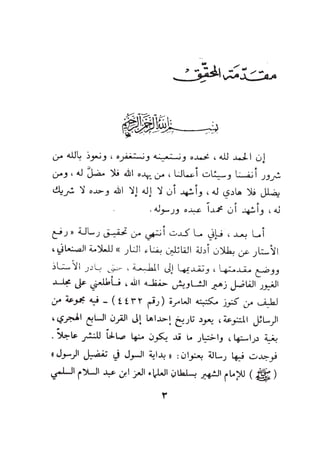 مقدمة المحقق
بسم الله الرحمن الرحيم
إن الحمد لله ، نحمده ونستعينه ونستغفره ، ونعوذ بالله من
شرور أنفسنا وسيئات أعمالنا ، من يهده الله فلا مضل له ، ومن
يضلل فلا هادي له ، وأشهد أن لا إله إلا الله وحده لا شريك
له ، وأشهد أن محمداً عبده ورسوله .
أما بعد ، فإني ما كدت أنتهي من تحقيق رسالة « رفع
الأستار عن بطلان أدلة القائلين بفناء النار » للعلامة الصنعاني ،
ووضع مقدمتها ، وتقديمها إلى المطبعة ، حتى بادر الأستاذ
الغيور الفاضل زهير الشاويش حفظه الله ، فأطلعني على مجلد
لطيف من كنوز مكتبته العامرة ( رقم ٤٤٣٢ ) - فيه مجموعة من
الرسائل المتنوعة ، يعود تاريخ إحداها إلى القرن السابع الهجري ،
بغية دراستها ، واختيار ما قد يكون منها صالحاً للنشر عاجلاً .
فوجدت فيها رسالة بعنوان : « بداية السول في تفضيل الرسول »
( ﷺ ) للإمام الشهير بسلطان العلماء العز ابن عبد السلام السلمي
٣